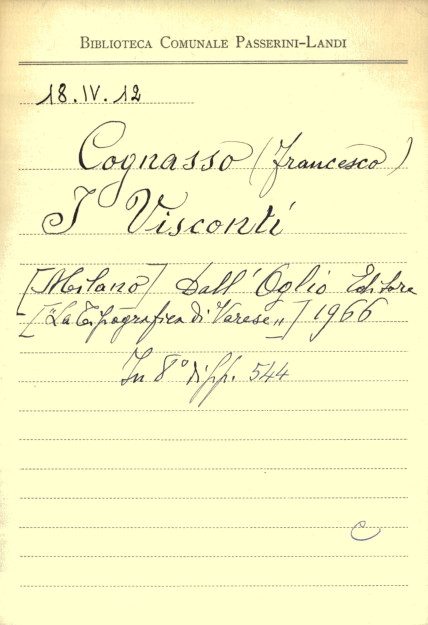 BIBLIOTECA COMUNALE PASSERINI-LANDI
18.IV.12
Cognasso (Francesco)
I Visconti
[Milano] Dall'Oglio Editore
["La Tipografica di Varese„] 1966
In 8° di pp. 544
C